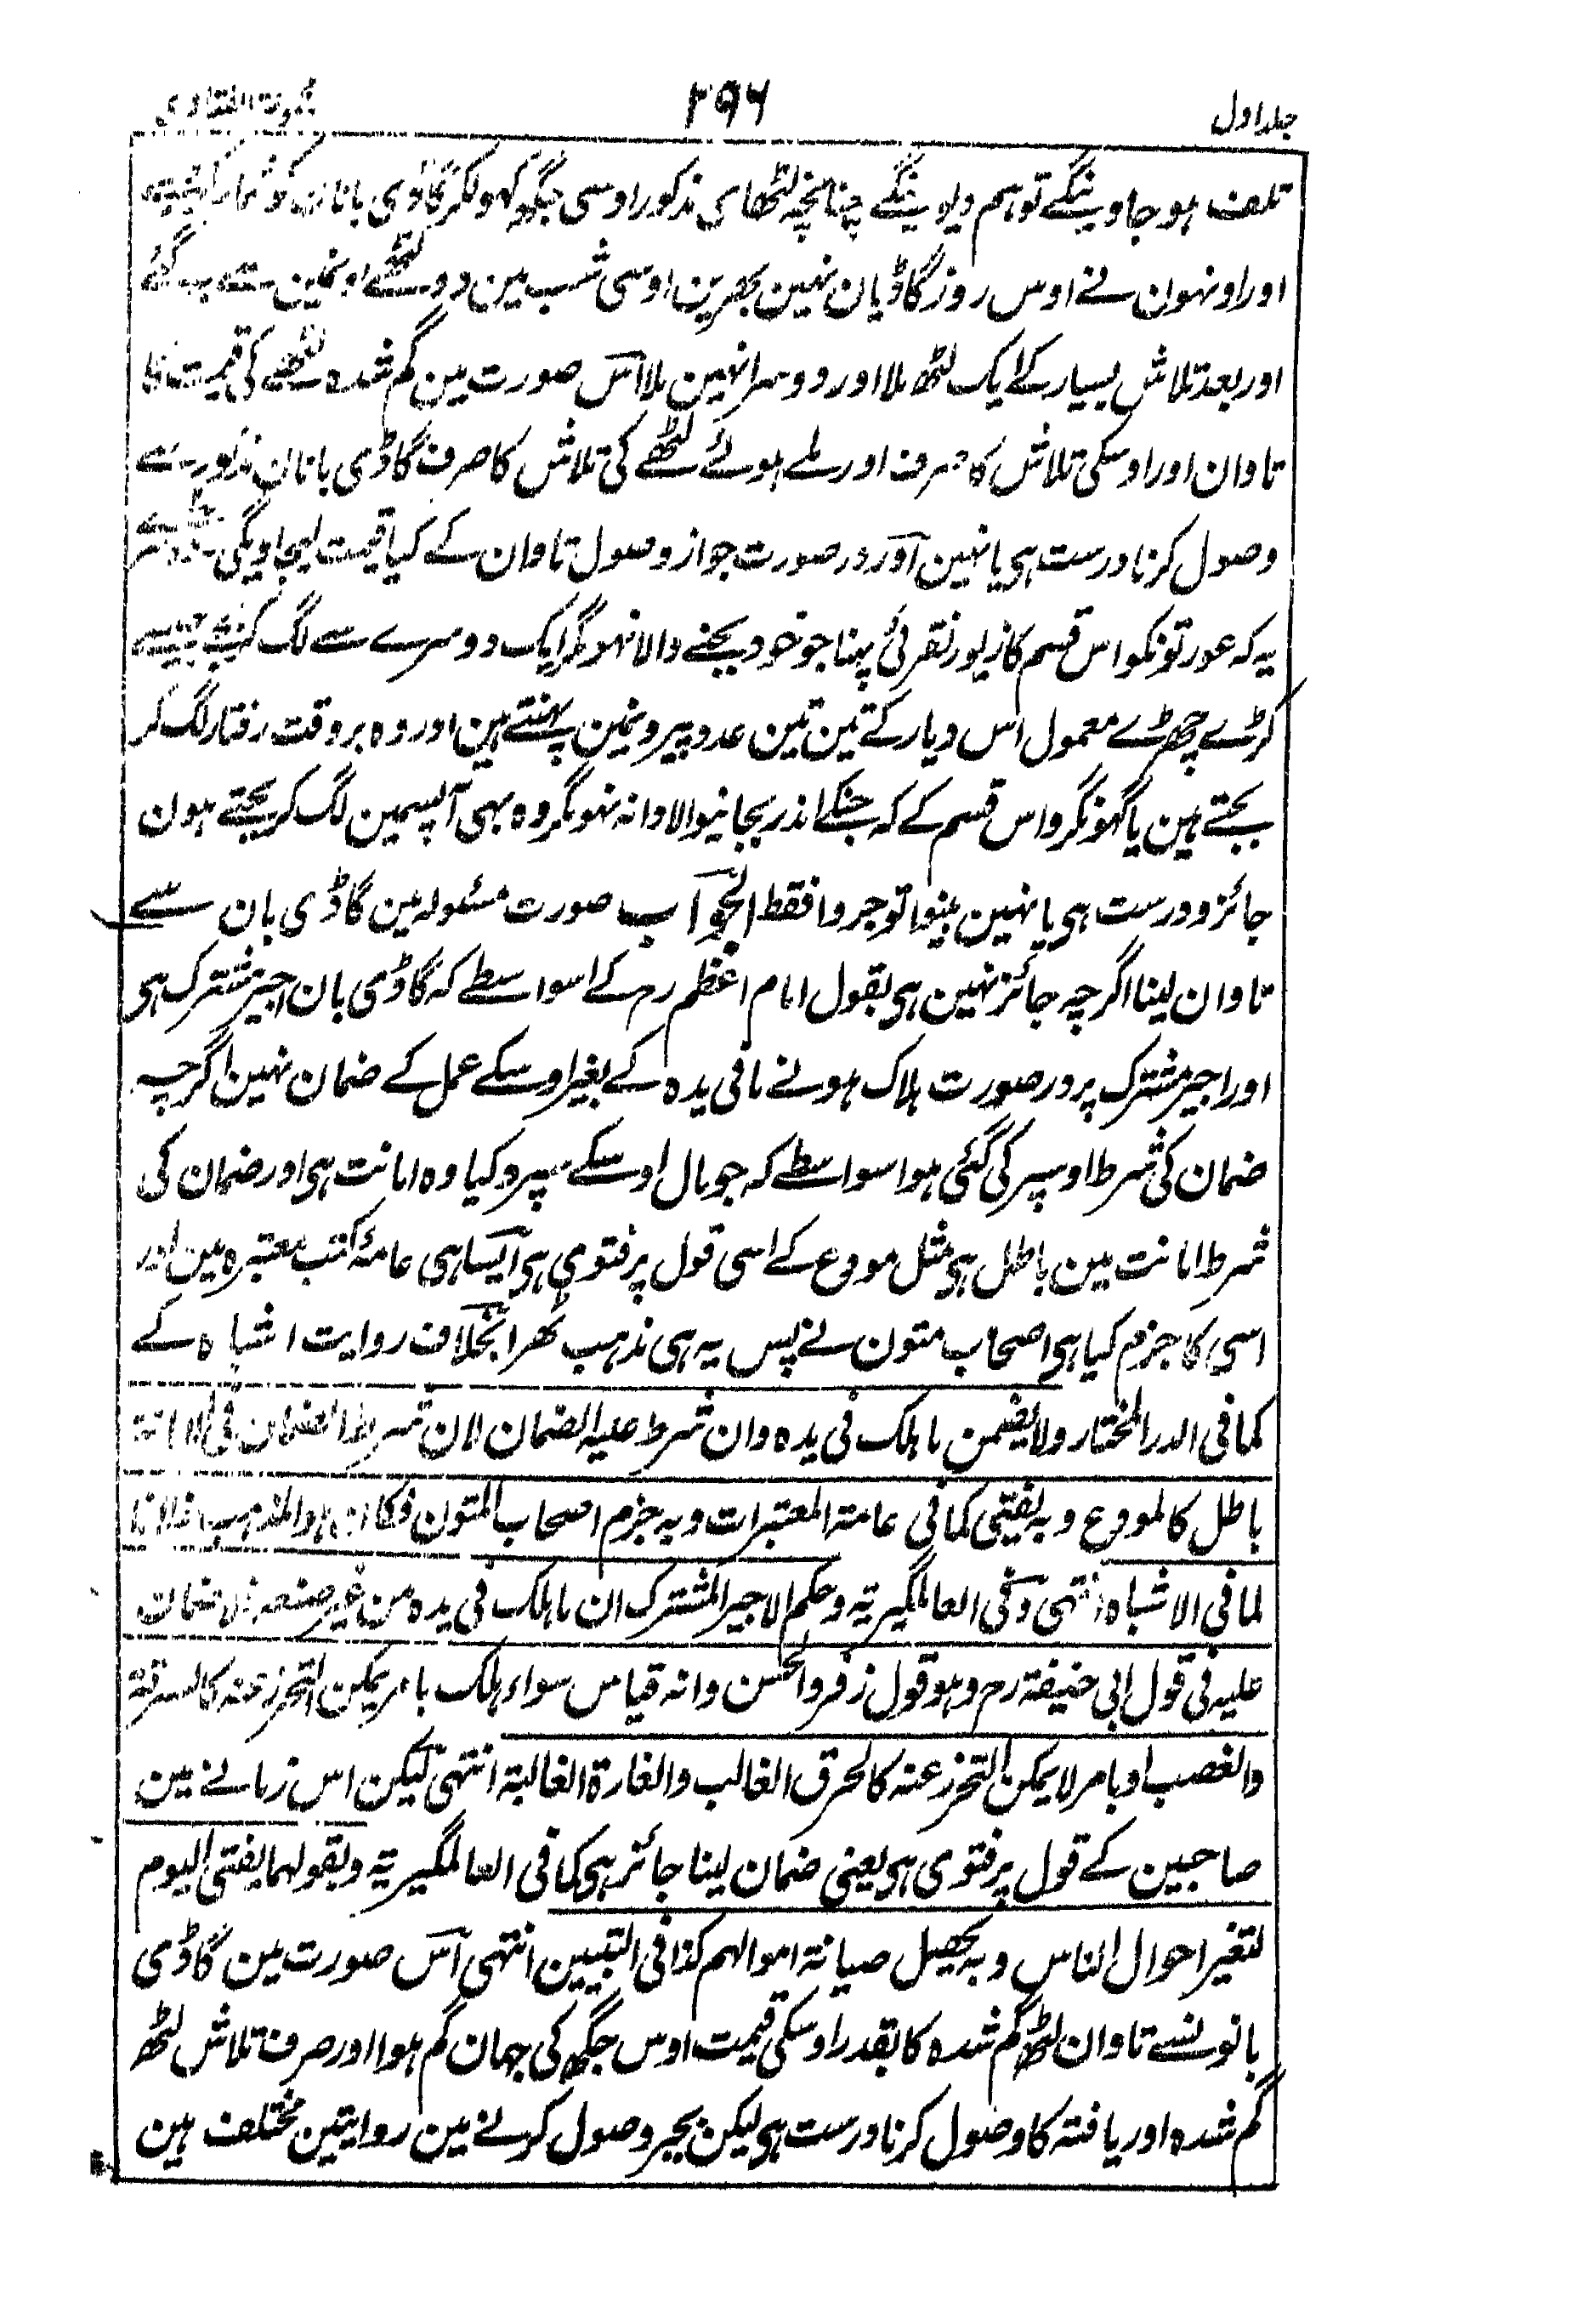 جلد اول
۲۹۶
تلف ہو جاوینگے تو ہم دیوینگے چنانچہ لٹھای مذکور اوسی جگہ کھولکر گاڈی بانان
اور اونہون نے اوس روز گاڈیان نہین بھرین اوسی شب مین دو لٹھے اونمین سے بہ گئے
اور بعد تلاش بسیار کے ایک لٹھ ملا اور دوسرا نہین ملا اس صورت مین گم شدہ لٹھے کی قیمت کا
تاوان اور اوسکی تلاش کا صرف اور ملے ہوئے لٹھے کی تلاش کا صرف گاڈی بانان مذکور سے
وصول کرنا درست ہی یا نہین اور در صورت جواز وصول تاوان کے کیا قیمت لیجاویگی
یہ کہ عورتونکو اس قسم کا زیور نقرئی پہننا جو خود بجنے والا نہو مگر ایک دوسرے سے لگ کر بجے جیسے
کڑے چھڑے معمول اس دیار کے تین تین عدد پیرونمین پہنتے ہین اور وہ بروقت رفتار لگ کر
بجتے ہین یا گھونگرو اس قسم کے کہ جنکے اندر بجانیوالا دانہ نہو مگر وہ بھی آپسمین لگ کر بجتے ہون
جائز و درست ہی یا نہین بینوا توجروا فقط الجواب صورت مسئولہ مین گاڈی بان سے
تاوان لینا اگرچہ جائز نہین ہی بقول امام اعظم رح کے اسواسطے کہ گاڈی بان اجیر مشترک ہی
اور اجیر مشترک پر در صورت ہلاک ہونے مافی یدہ کے بغیر اوسکے عمل کے ضمان نہین اگرچہ
ضمان کی شرط اوسپر کی گئی ہو اسواسطے کہ جو مال اوسکے سپرد کیا وہ امانت ہی اور ضمان کی
شرط امانت مین باطل ہی مثل مودع کے اسی قول پر فتوی ہی ایسا ہی عامۂ کتب معتبرہ مین اور
اسی کا جزم کیا ہی اصحاب متون نے پس یہ ہی مذہب ٹھرا بخلاف روایت اشباہ کے
کما فی الدر المختار ولا یضمن ما ہلک فی یدہ وان شرط علیہ الضمان لان شرط الضمان فی الامانۃ
باطل کالمودع وبہ یفتی کما فی عامۃ المعتبرات وبہ جزم اصحاب المتون فکان ہو المذہب خلافا
لما فی الاشباہ انتہی وفی العالمگیریۃ وحکم الاجیر المشترک ان ما ہلک فی یدہ من غیر صنعہ فلا ضمان
علیہ فی قول ابی حنیفۃ رح وہو قول زفر والحسن وانہ قیاس سواء ہلک بامر یمکن التحرز عنہ کالسرقۃ
والغصب او بامر لا یمکن التحرز عنہ کالحرق الغالب والغارۃ الغالبۃ انتہی لیکن اس زمانے مین
صاحبین کے قول پر فتوی ہی یعنی ضمان لینا جائز ہی کما فی العالمگیریۃ وبقولہما یفتی الیوم
لتغیر احوال الناس وبہ یحصل صیانۃ اموالہم کذا فی التبیین انتہی اس صورت مین گاڈی
بانونسے تاوان لٹھ گم شدہ کا بقدر اوسکی قیمت اوس جگھ کی جہان گم ہوا اور صرف تلاش لٹھ
گم شدہ اور یافتہ کا وصول کرنا درست ہی لیکن بجبر وصول کرنے مین روایتین مختلف ہین